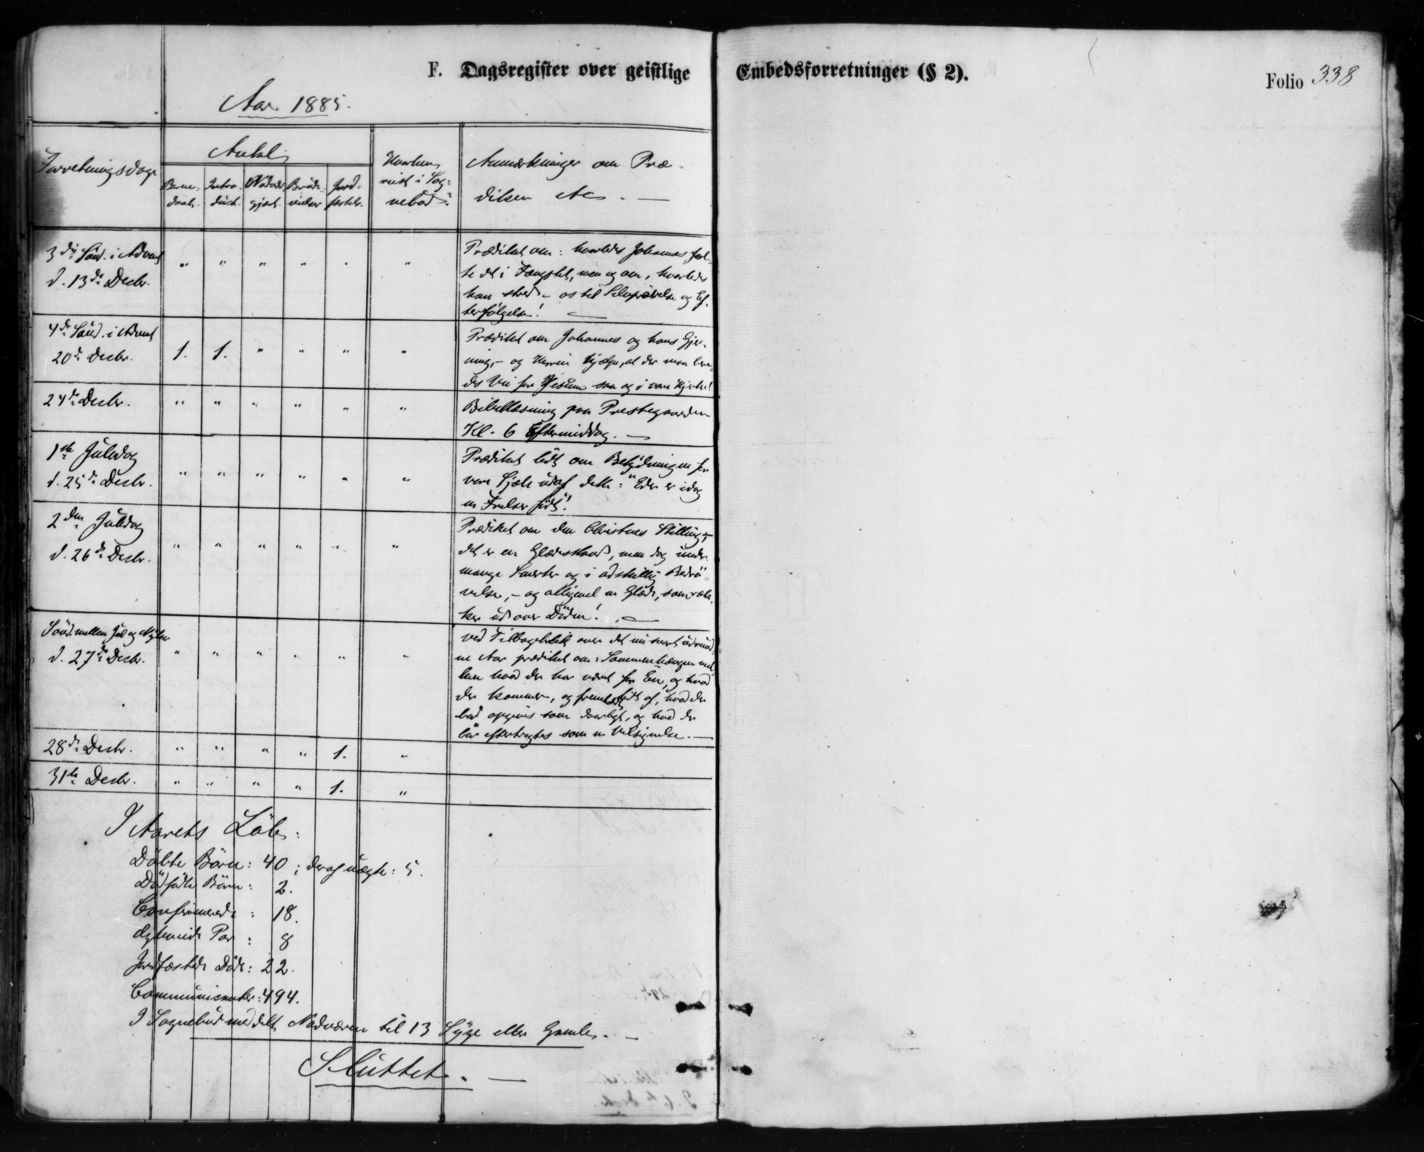 F. Dagsregister over geistlige Embedsforretninger (§ 2).
Folio 338
Aar 1885.
Forretningsdage
Antal
Barne-
daab.
Intro-
duct.
Nadver
gjest.
Brude-
vielser
Jord-
fæstels.
Hvorhen
reist i Sog-
nebud.
Anmærkninger om Præ-
diken etc. —
3die Sønd. i Advent
d. 13de Decbr. " " " " " "
Prædiket om: hvorledes Johannes
det i Fængslet, men og om, hvorledes
han stred – os til Selvprøvelse og Ef-
terfølgelse! —
4de Sønd. i Advent
20de Decbr. 1. 1. " " " "
Prædiket om Johannes og hans Gjer-
ning, – og Herren hjælpe, at der maa
des Vei for Jesum saa og i vore Hjerter!
24de Decbr. " " " " " "
Bibellæsning paa Prestegaarden
Kl. 6 Eftermiddag. —
1ste Juledag
d. 25de Decbr. " " " " " "
Prædiket lidt om Betydningen for
vore Sjæle udaf dette: "Eder er idag
en Frelser født"!
2den Juledag
d. 26de Decbr. " " " " " "
Prædiket om den Christnes Stilling –
det er en Glædesstand, men dog under
mange Smerter og i adskillig Bedrø-
velse, – og alligevel en Glæde, som ræk-
ker ud over Døden! —
Sønd. mellem Jul og Nytaar
d. 27de Decbr. " " " " " "
ved Tilbageblik over det nu snart udrund-
ne Aar prædiket om: Sammenhængen mel-
lem hvad der har været før En, og hvad
der kommer, og fremholdt af, hvad der
bad opgives som daarligt, og hvad der
bør eftertragtes som en Velsignelse. —
28de Decbr. " " " " 1. "
31te Decbr. " " " " 1. "
I Aarets Løb:
Døbte Børn: 40; deraf uægte: 5.
Dødfødte Børn: 2.
Confirmerede: 18.
Ægteviede Par: 8
Jordfæstede Døde: 22.
Communicanter: 494.
I Sognebud meddelt Nadveren til 13 Syge eller Gamle. —
Sluttet. —